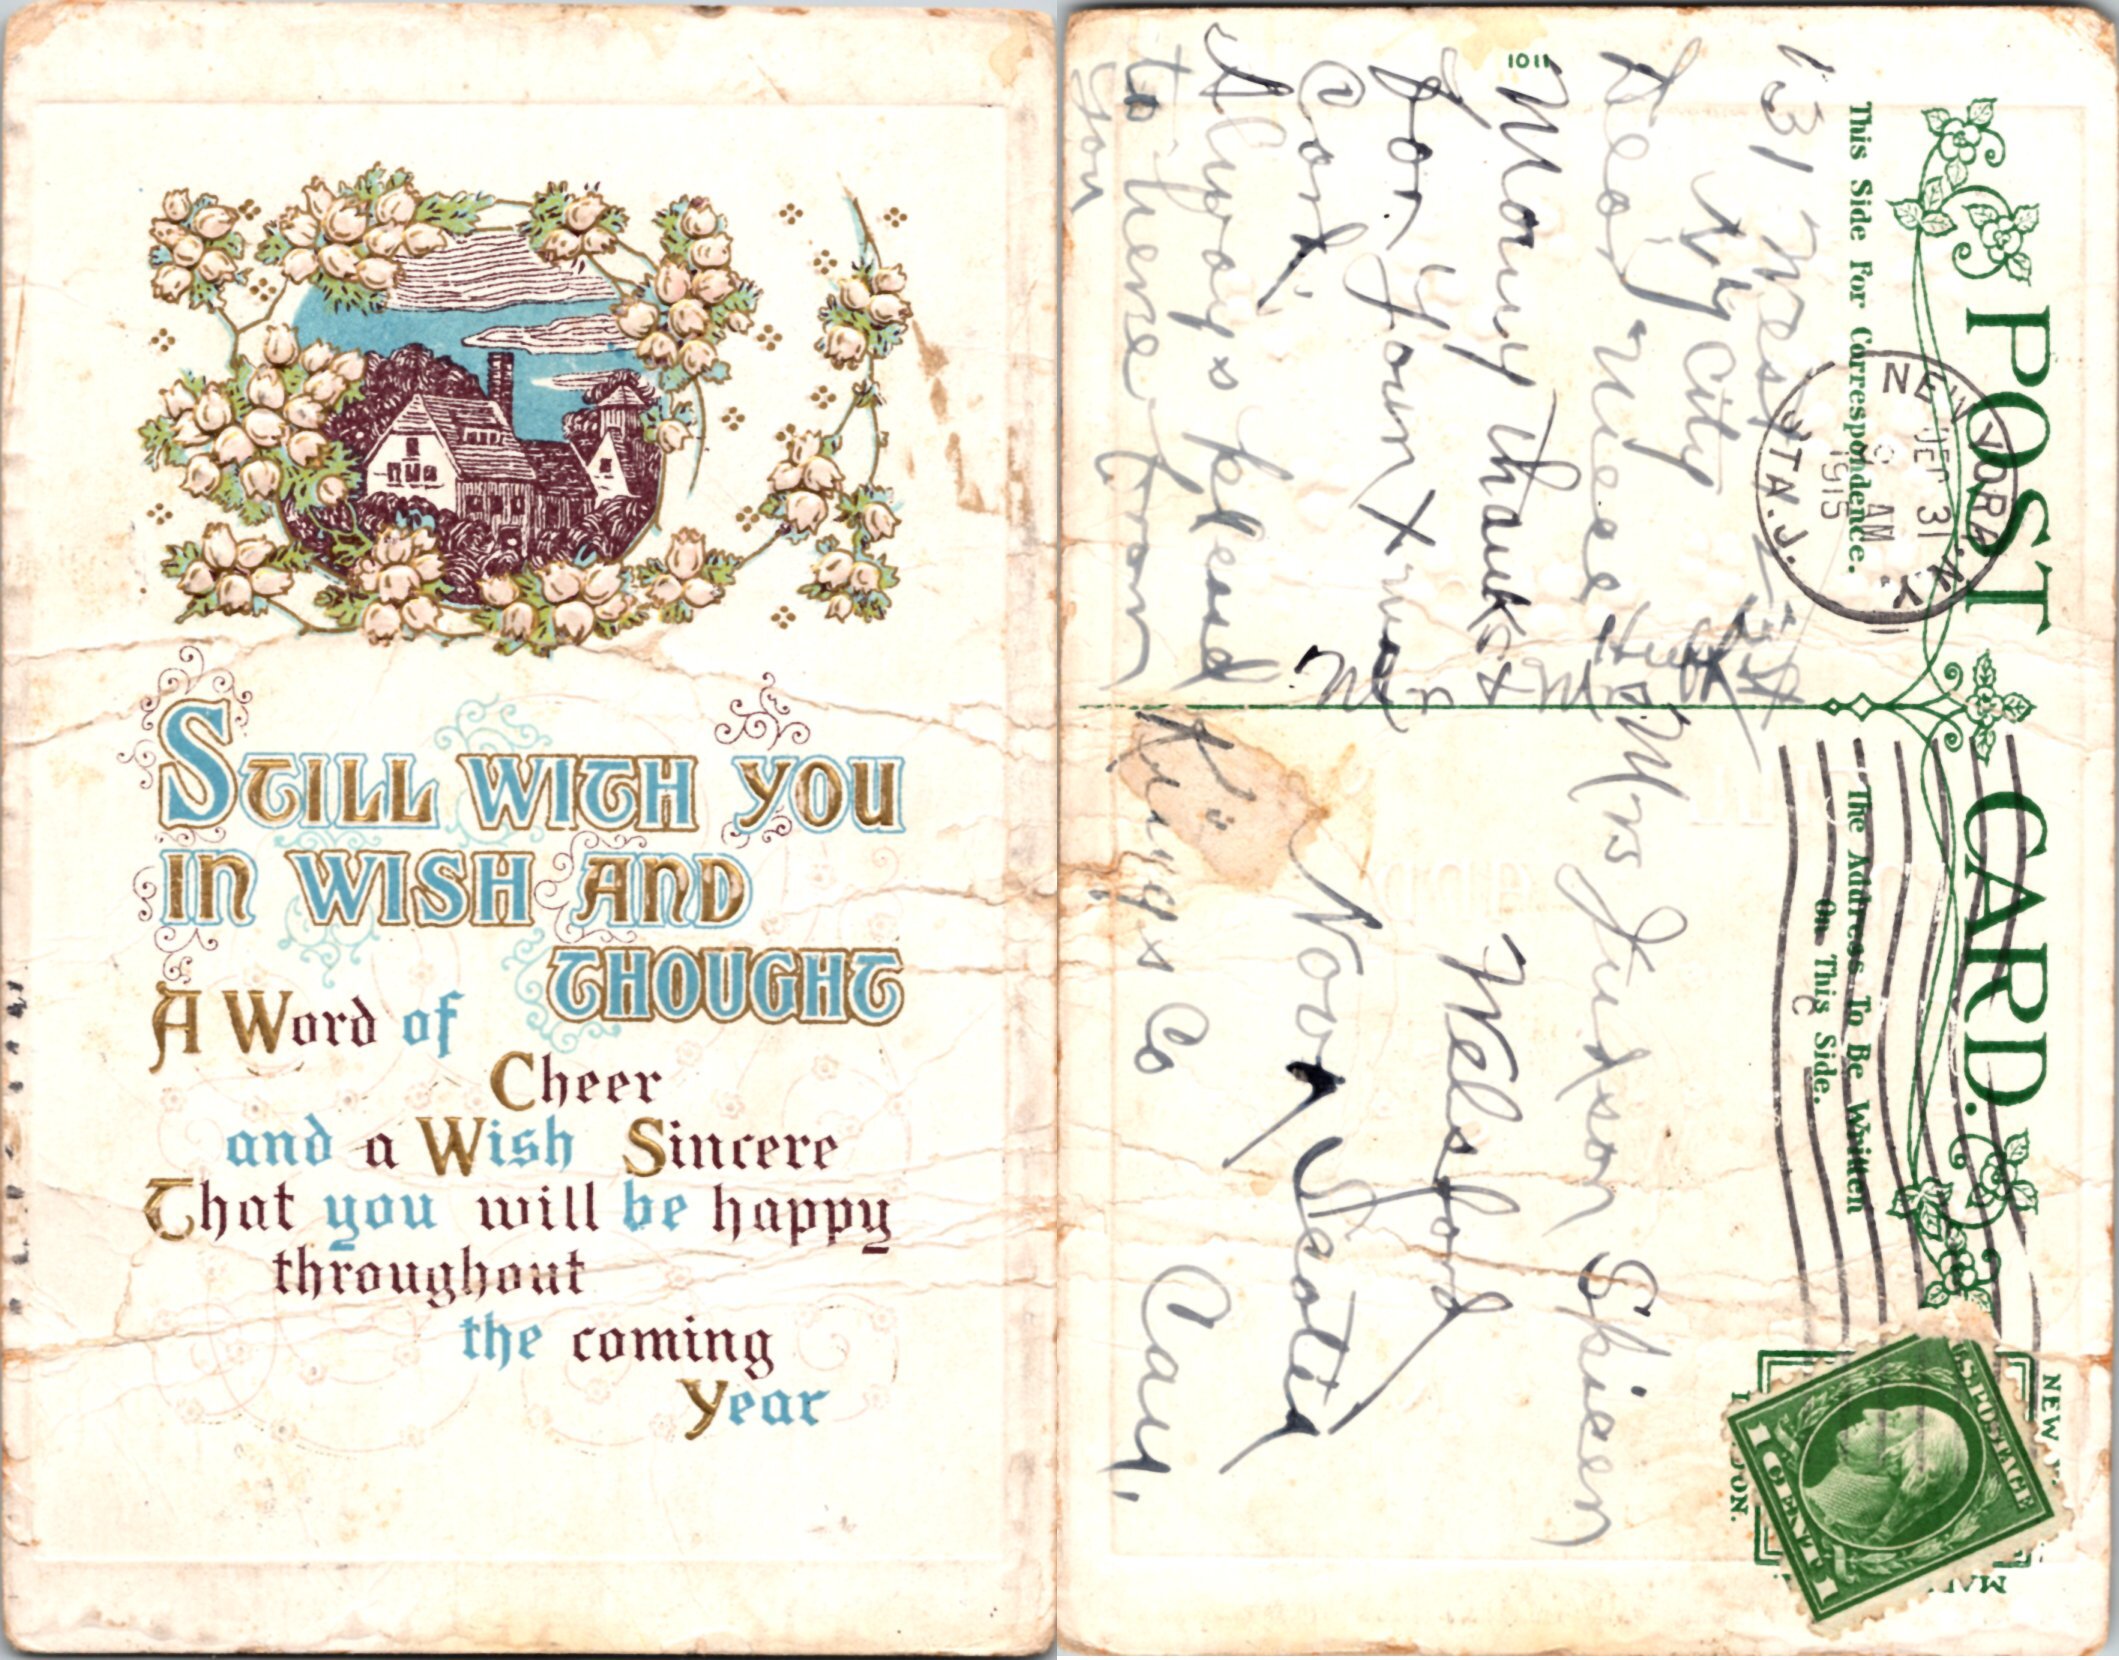 STILL WITH YOU
IN WISH AND
THOUGHT
A Word of
Cheer
and a Wish Sincere
That you will be happy
throughout
the coming
Year
POST CARD.
This Side For Correspondence.
The Address To Be Written
On This Side.
1011
NEW YORK, N.Y.
STA. J.
DEC 31
AM
1915
131 West
N y City
Dear niece
Many thanks
for your Xmas
Card.
Always pleased
to hear from
you
Mrs Judson Spicer
Welsford
Nova Scotia
Kings Co
Can.
NEW
U.S. POSTAGE
1 CENT 1